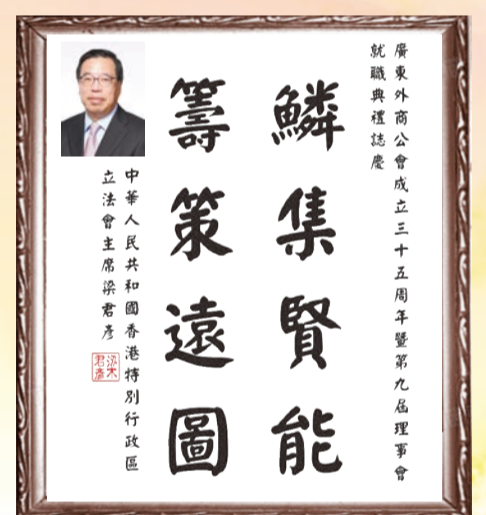 廣東外商公會成立三十五周年暨第九屆理事會
就職典禮誌慶
鱗集賢能
籌策遠圖
中華人民共和國香港特別行政區
立法會主席梁君彥
梁君彥